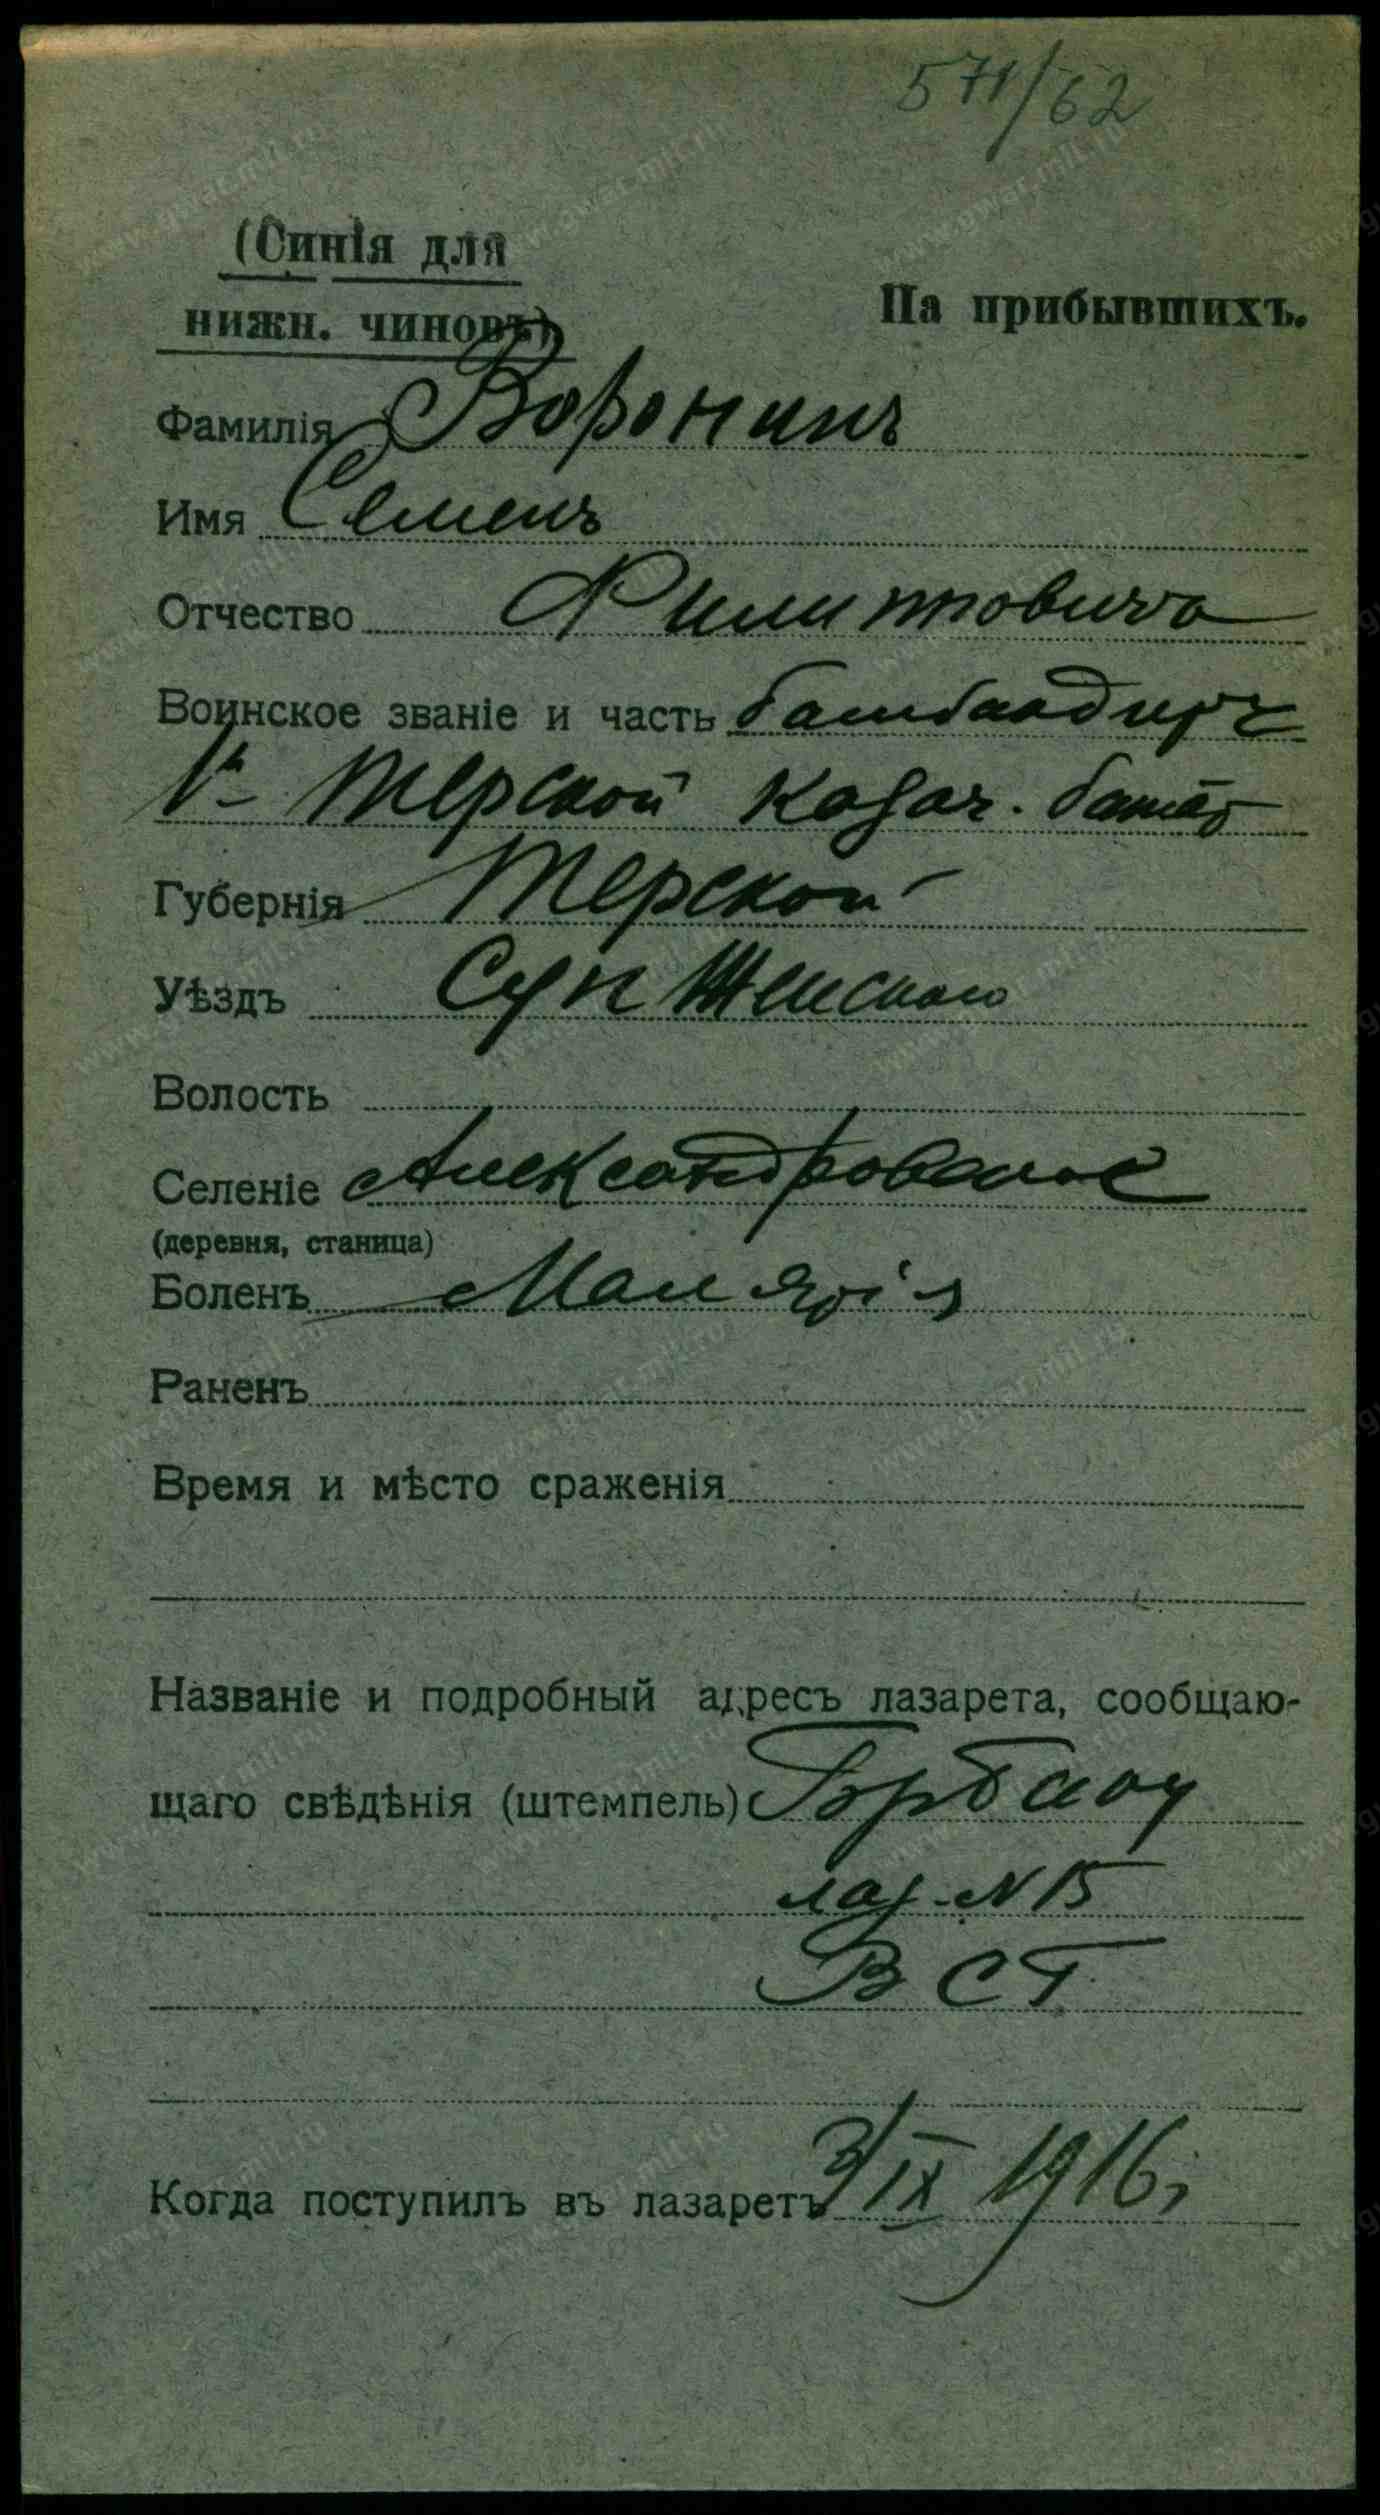 571/62
(Синія для
нижн. чиновъ)
На прибывшихъ.
Фамилія Воронинъ
Имя Семенъ
Отчество Филипповичъ
Воинское званіе и часть бомбандиръ
1й Терской казач. батар
Губернія Терской
Уѣздъ Сунженского
Волость
Селеніе Александровское
(деревня, станица)
Боленъ Малярія
Раненъ
Время и мѣсто сраженія
Названіе и подробный адресъ лазарета, сообщаю-
щаго свѣдѣнія (штемпель)
лаз. N 15
В С Г
Когда поступилъ въ лазаретъ 3/IX 1916 г
www.gwar.mil.ru